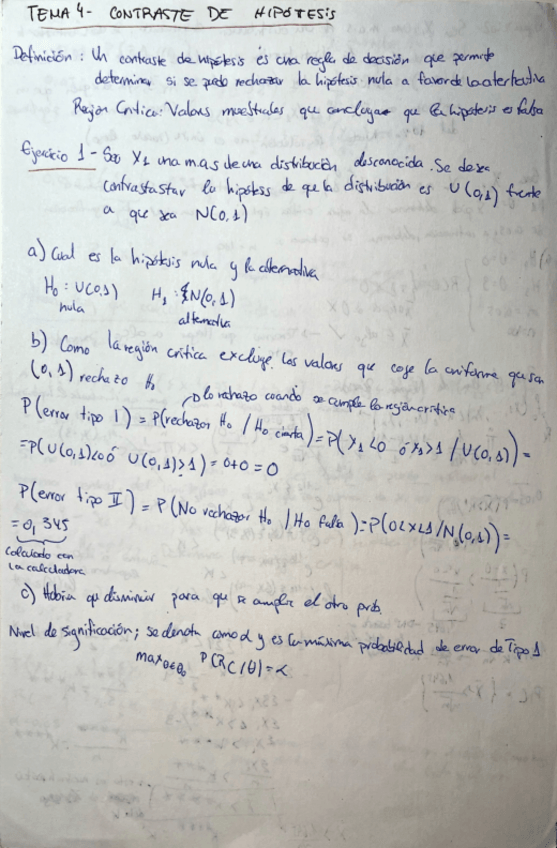 TEMA 4- CONTRASTE DE HIPÓTESIS
Definición: Un contraste de hipótesis es una regla de decisión que permite
determinar si se puede rechazar la hipótesis nula a favor de la alternativa
Región Crítica: Valores muestrales que concluyen que la hipótesis es falsa
Ejercicio 1- Sea X1 una mas de una distribución desconocida. Se desea
contrastastar la hipótesis de que la distribución es U(0,1) frente
a que sea N(0,1)
a) Cual es la hipótesis nula y la alternativa
H0: U(0,1) H1: N(0,1)
nula alternativa
b) Como la región crítica excluye los valores que coge la uniforme que son
(0,1) rechazo H1
lo rechazo cuando se cumple la region critica
P(error tipo I) = P(rechazar H0 / H0 cierta) = P(X1<0 ó X1>1 / U(0,1)) =
=P(U(0,1)<0 ó U(0,1)>1) = 0+0 = 0
P(error tipo II) = P(No rechazar H0 / H0 falsa) = P(0<X<1/N(0,1)) =
= 0,345
Calculado con
la calculadora
c) Habria que disminuir para que se amplie el otro prob.
Nivel de significación; se denota como α y es la máxima probabilidad de error de Tipo 1
max θ∈Θ0 P(RC/θ) = α